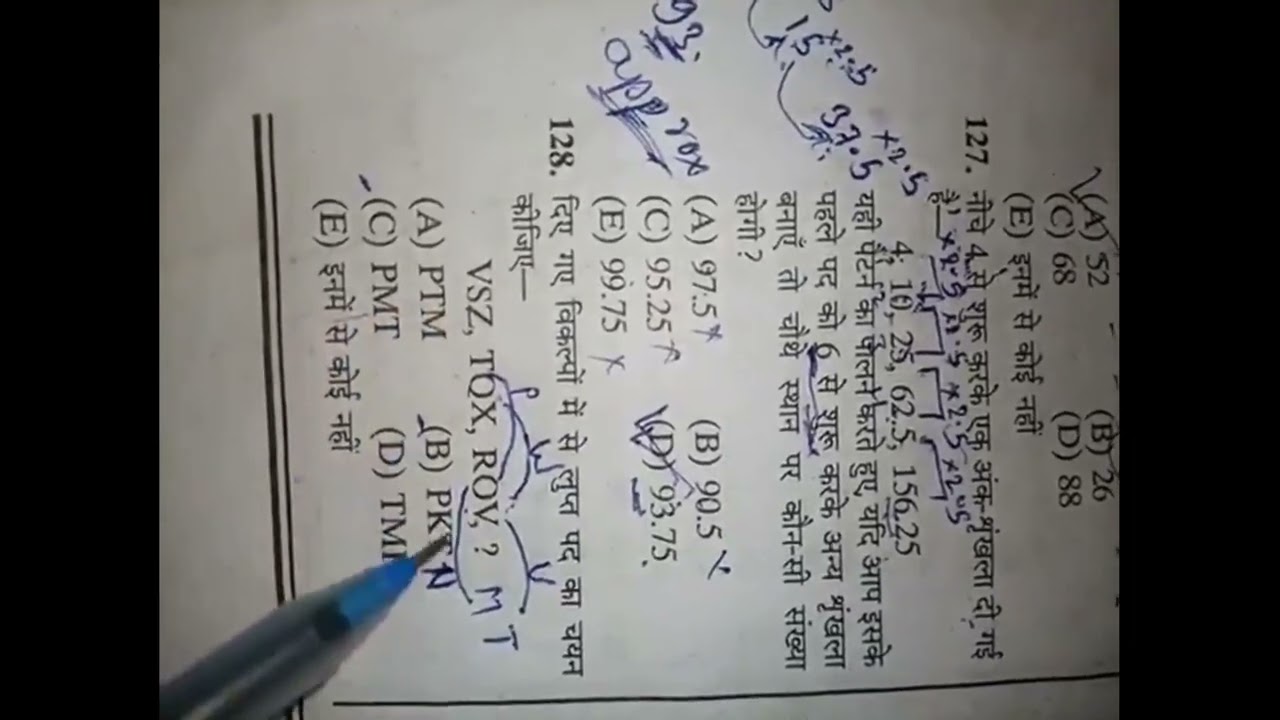 (A) 52 (B) 26
(C) 68 (D) 88
(E) इनमें से कोई नहीं
127. नीचे 4 से शुरू करके एक अंक-शृंखला दी गई
है—
×2.5 ×2.5 ×2.5 ×2.5
4, 10, 25, 62.5, 156.25
यही पैटर्न का पालन करते हुए यदि आप इसके
पहले पद को 6 से शुरू करके अन्य शृंखला
बनाएँ तो चौथे स्थान पर कौन-सी संख्या
होगी ?
(A) 97.5 (B) 90.5
(C) 95.25 (D) 93.75
(E) 99.75
×2.5 ×2.5
15 37.5
93.
approx
128. दिए गए विकल्पों में से लुप्त पद का चयन
कीजिए—
VSZ, TQX, ROV, ?
M T
(A) PTM (B) PKT
N
(C) PMT (D)
(E) इनमें से कोई नहीं